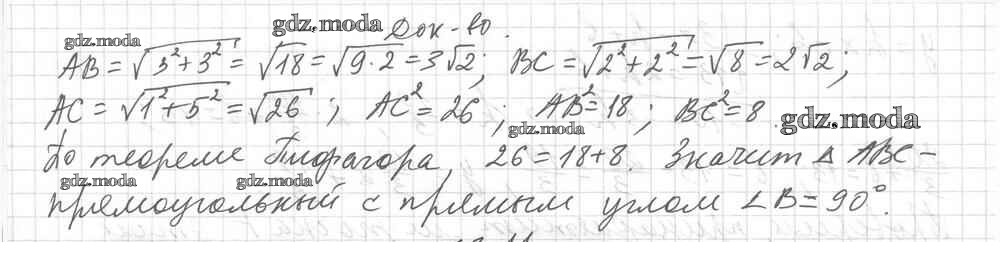 gdz.moda
Док-во.
gdz.moda
AB = √(3²+3²) = √18 = √(9·2) = 3√2; BC = √(2²+2²) = √8 = 2√2;
AC = √(1²+5²) = √26; AC² = 26; AB² = 18; BC² = 8.
gdz.moda
gdz.moda
По теореме Пифагора, 26 = 18+8. Значит △ ABC –
gdz.moda
gdz.moda
прямоугольный с прямым углом ∠B = 90°.